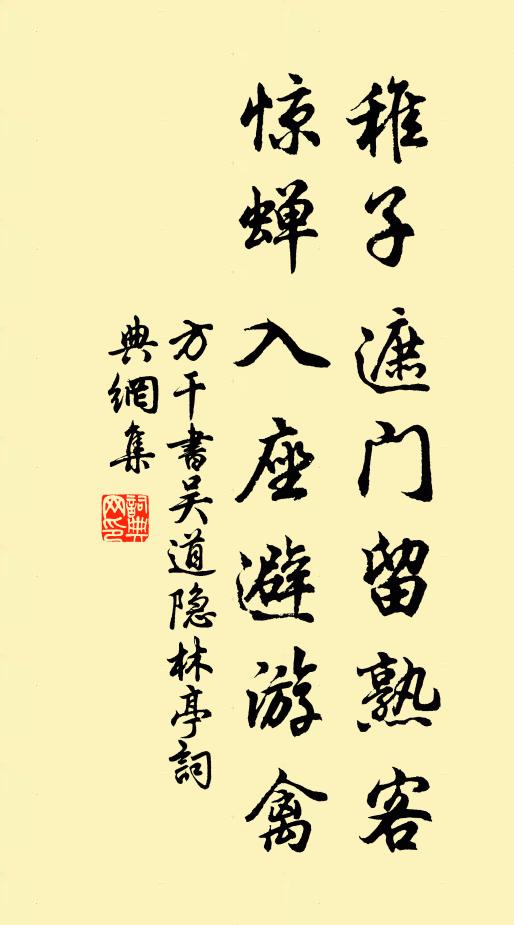 稚子遮门留熟客
惊蝉入座避游禽
方干书吴道隐林亭詞
典網集
詞典网印